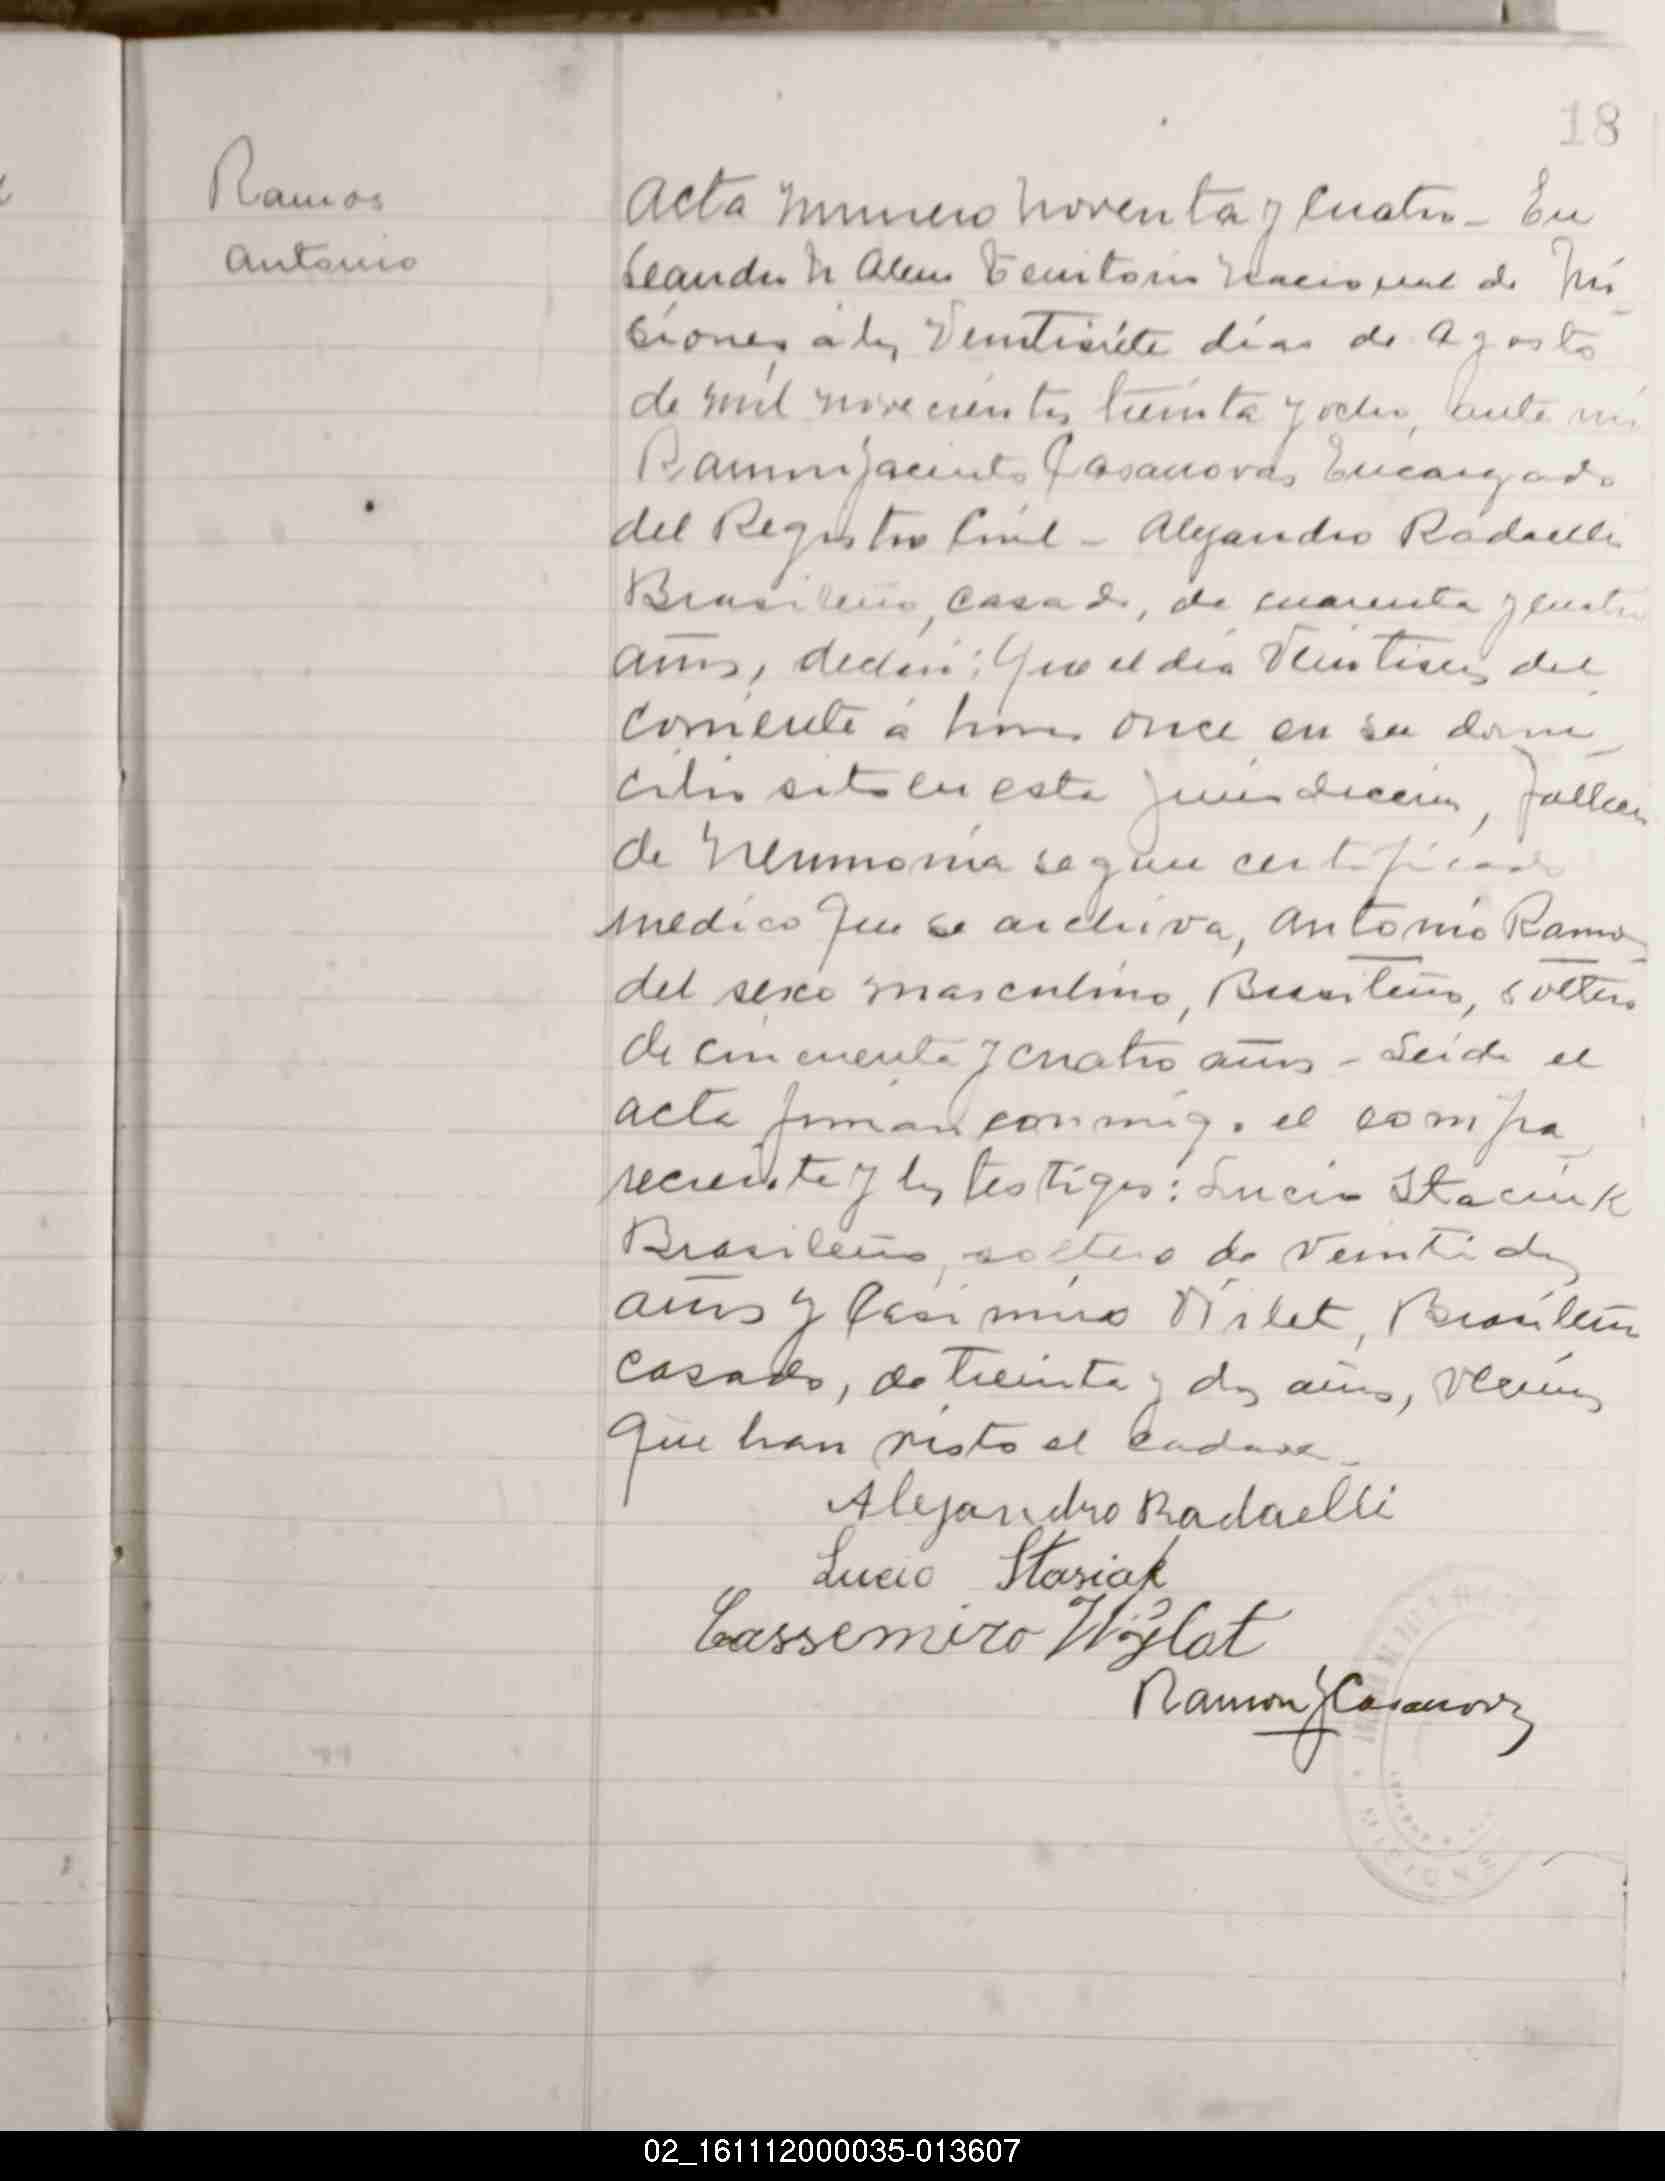 18
Ramos
Antonio
Acta Numero Noventa y Cuatro - En
Leandro N Alem Territorio Nacional de Mi-
siones, a los Veintisiete dias de Agosto
de mil novecientos treinta y ocho, ante mi
Ramon Jacinto Casanovas Encargado
del Registro Civil - Alejandro Radaelli
Brasileño, casado, de cuarenta y cuatro
años, declaró: Que el dia Veintiseis del
corriente á horas once en su domi-
cilio sito en esta jurisdiccion, falleció
de Neumonia segun certificado
medico que se archiva, Antonio Ramos
del sexo masculino, Brasileño, soltero
de cincuenta y cuatro años - Leida el
acta firman conmigo el compa-
reciente y los testigos: Lucio Staciuk
Brasileño, soltero de veintidos
años y Casimiro Vislet, Brasileño
casado, de treinta y dos años, vecinos
que han visto el cadaver -
Alejandro Radaelli
Lucio Stasiak
Cassemiro Wÿlot
Ramon J Casanovas
MISIONES
02_161112000035-013607